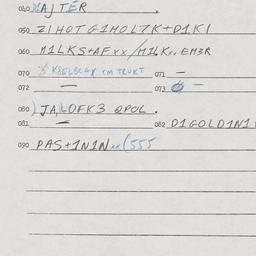 040 MAJTER .
050 ZIHOTG1MOLZK+D1KI
060 M1LKS+AFXX/M1LKXX EM3R
070 K8ELBCAY CM TRUKT 071 —
072 — 073 —
080 ) JAILDFK3 QPOL .
081 — 082 D1GOLD1N1
090 PAS+1N1N XX (555